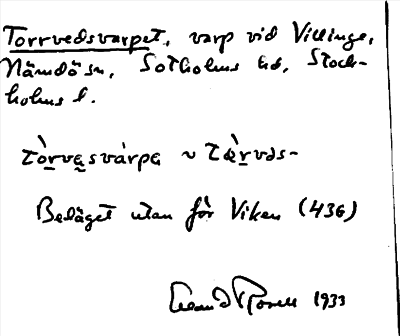 Torrvedsvarpet, varp vid Villinge,
Nämdö sn, Sotholms hd, Stock-
holms l.
tòrvęsvárpę ~ tæ̀rvəs-
Beläget utan för Viken (436)
1933